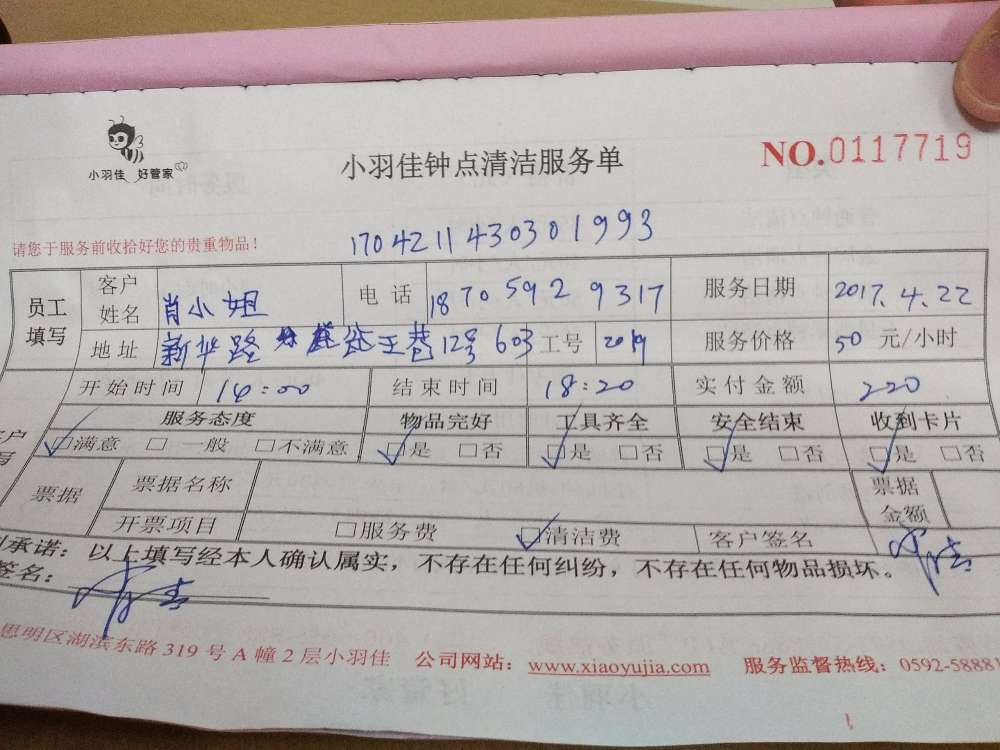 小羽佳 好管家
小羽佳钟点清洁服务单
NO.0117719
请您于服务前收拾好您的贵重物品！
170421143030 1993
员工填写 客户姓名 肖小姐 电话 18705929317 服务日期 2017.4.22
地址 新华路 12号603 工号 服务价格 50 元/小时
开始时间 14:00 结束时间 18:20 实付金额 220
服务态度 物品完好 工具齐全 安全结束 收到卡片
☑满意 □一般 □不满意 ☑是 □否 ☑是 □否 ☑是 □否 ☑是 □否
票据 票据名称 票据金额
开票项目 □服务费 ☑清洁费 客户签名
承诺：以上填写经本人确认属实，不存在任何纠纷，不存在任何物品损坏。
签名：
思明区湖滨东路 319 号 A 幢 2 层小羽佳 公司网站：www.xiaoyujia.com 服务监督热线：0592-58881